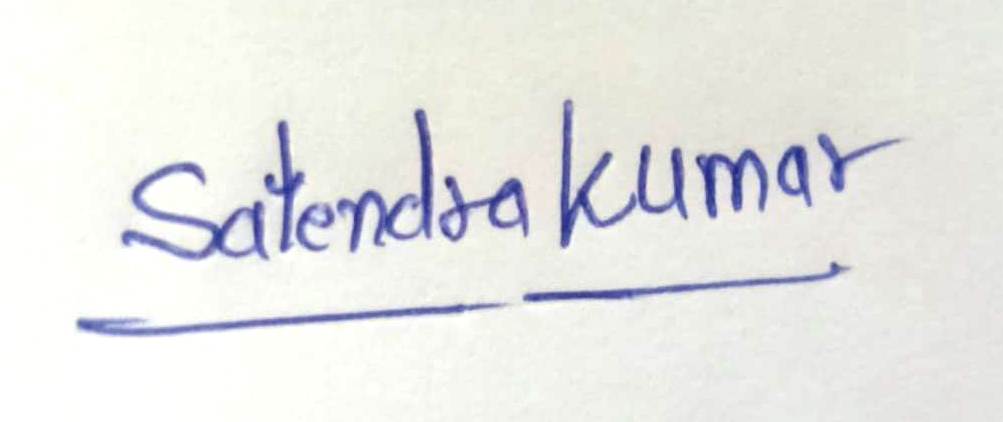 Satendra kumar